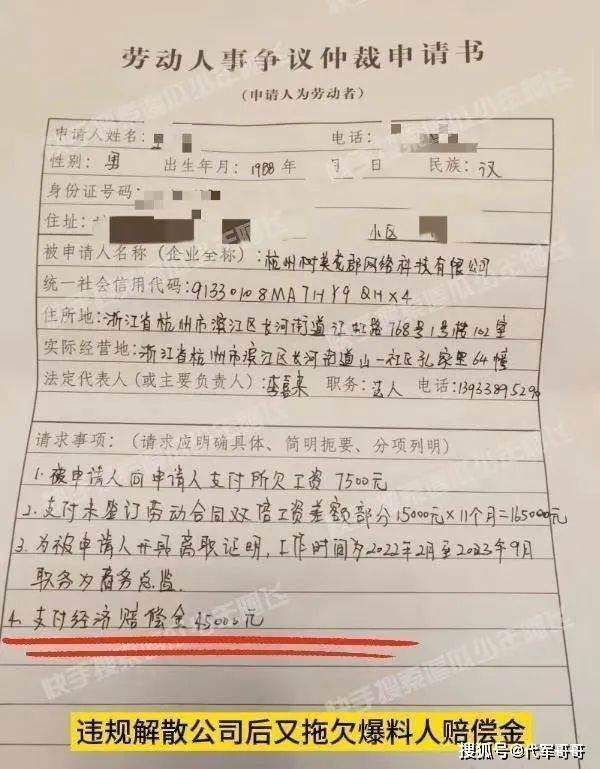 劳动人事争议仲裁申请书
（申请人为劳动者）
申请人姓名： 电话：
性别：男 出生年月：1988年 月 日 民族：汉
身份证号码：
住址： 小区
被申请人名称（企业全称）：杭州树英 郡网络科技有限公司
统一社会信用代码：91330108MA7HY9QHX4
住所地：浙江省杭州市滨江区长河街道江虹路768号1号楼102室
实际经营地：浙江省杭州市滨江区长河街道山一社区孔家里64幢
法定代表人（或主要负责人） 职务：法人 电话：
请求事项：（请求应明确具体、简明扼要、分项列明）
1.被申请人向申请人支付所欠工资7500元
2.支付未签订劳动合同双倍工资差额部分15000元×11个月=165000元
3.为被申请人开具离职证明，工作时间为2022年2月至2023年9月
职务为商务总监.
4.支付经济赔偿金45000元
违规解散公司后又拖欠爆料人赔偿金
搜狐号@代军哥哥